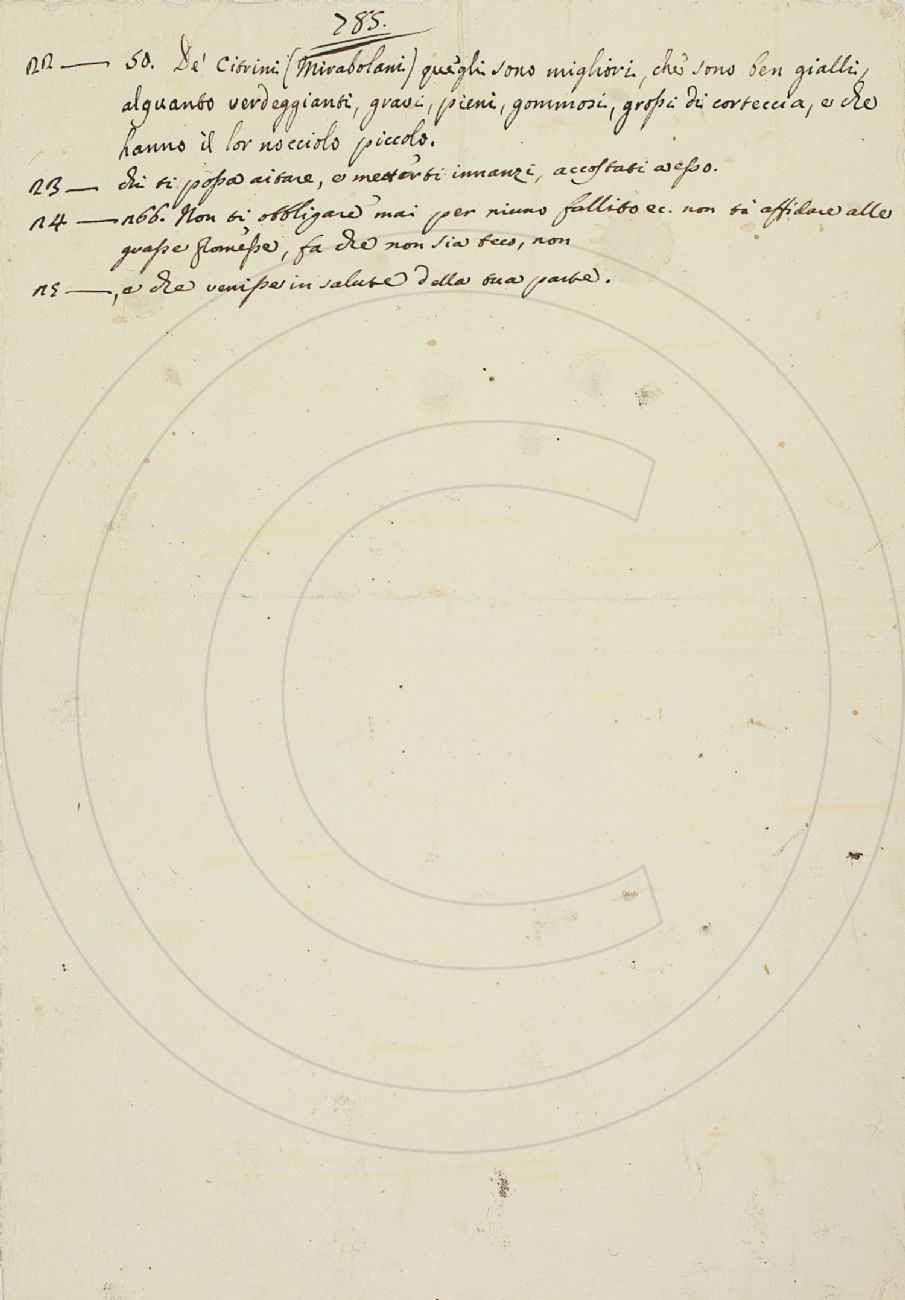 785.
22 — 50. De' Citrini (Mirabolani) quegli sono migliori, che sono ben gialli,
alquanto verdeggianti, gravi, pieni, gommosi, grossi di corteccia, e che
hanno il lor nocciolo piccolo.
23 — chi ti possa aitare, e metterti innanzi, accostati a esso.
24 — 266. Non ti obbligare mai per niuno fallito ec. non ti affidare alle
grasse promesse, fa che non sia teco, non
25 — , e che venisse in salute della tua parte.